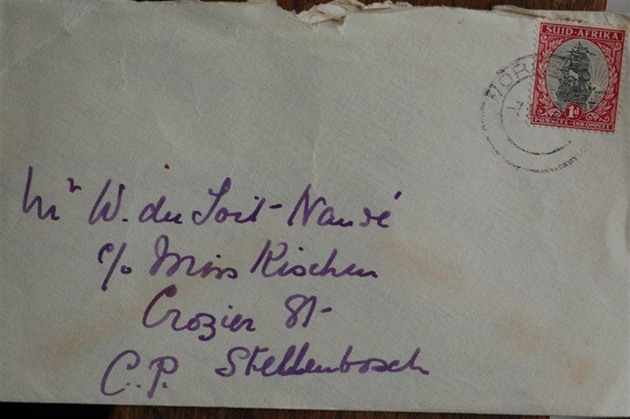 SUID-AFRIKA
1D
POSSEËL-INKOMSTE
Mr W. du Toit-Naudé
c/o Miss Kischen
Crozier St
C.P. Stellenbosch